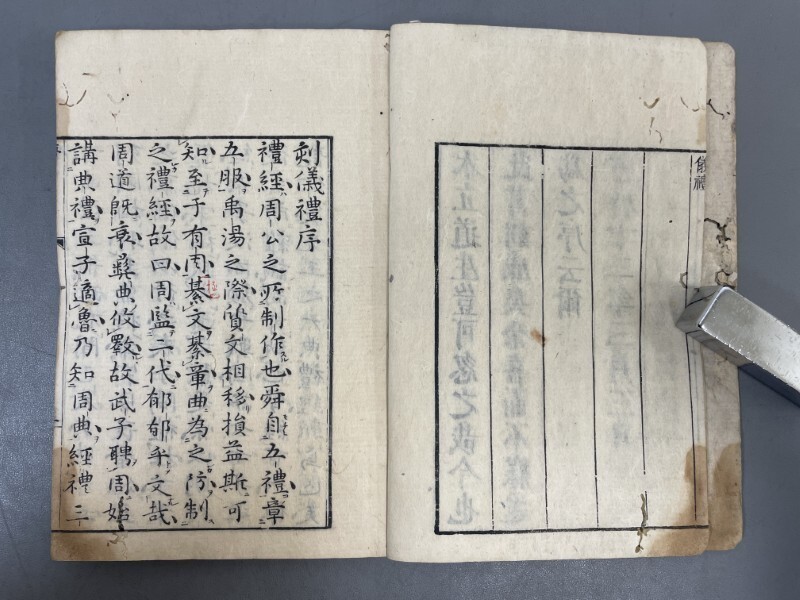 儀禮
刻儀禮序
禮經周公之所制作也舜自五禮章
五服禹湯之際質文相移損益斯可
知至于有周綦文綦章曲為之防制
之禮經故曰周監二代郁郁乎文哉
周道既衰彝典攸斁故武子聘周始
講典禮宣子適魯乃知周典經禮三